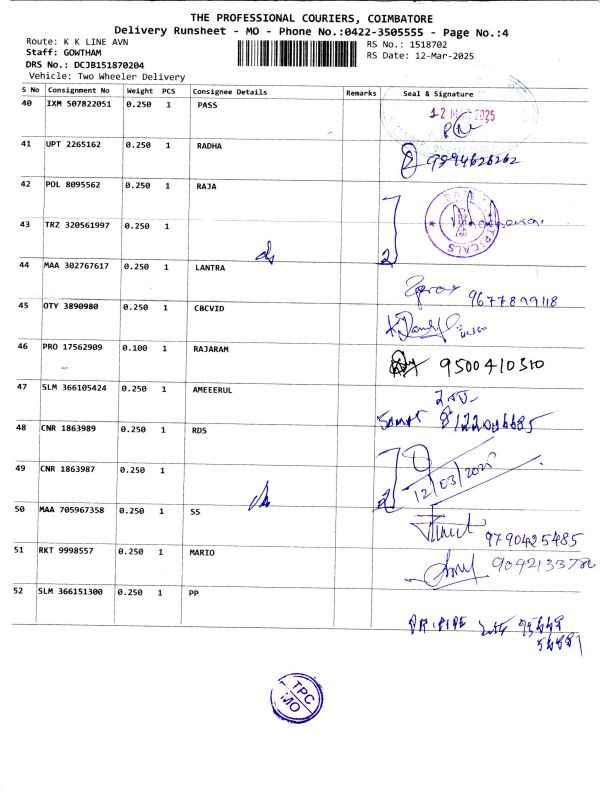 THE PROFESSIONAL COURIERS, COIMBATORE
Delivery Runsheet - MO - Phone No.:0422-3505555 - Page No.:4
Route: K K LINE AVN
RS No.: 1518702
Staff: GOWTHAM
RS Date: 12-Mar-2025
DRS No.: DCJB151870204
Vehicle: Two Wheeler Delivery
S No Consignment No Weight PCS Consignee Details Remarks Seal & Signature
40 IXM 507822051 0.250 1 PASS
12 MAR 2025
41 UPT 2265162 0.250 1 RADHA
9894626262
42 POL 8095562 0.250 1 RAJA
43 TRZ 320561997 0.250 1
2
44 MAA 302767617 0.250 1 LANTRA
9677899118
45 OTY 3890980 0.250 1 CBCVID
46 PRO 17562909 0.100 1 RAJARAM
9500410310
47 SLM 366105424 0.250 1 AMEEERUL
48 CNR 1863989 0.250 1 RDS
49 CNR 1863987 0.250 1
2
12/03/2025
50 MAA 705967358 0.250 1 SS
9790425485
51 RKT 9998557 0.250 1 MARIO
52 SLM 366151300 0.250 1 PP
TPC
MO